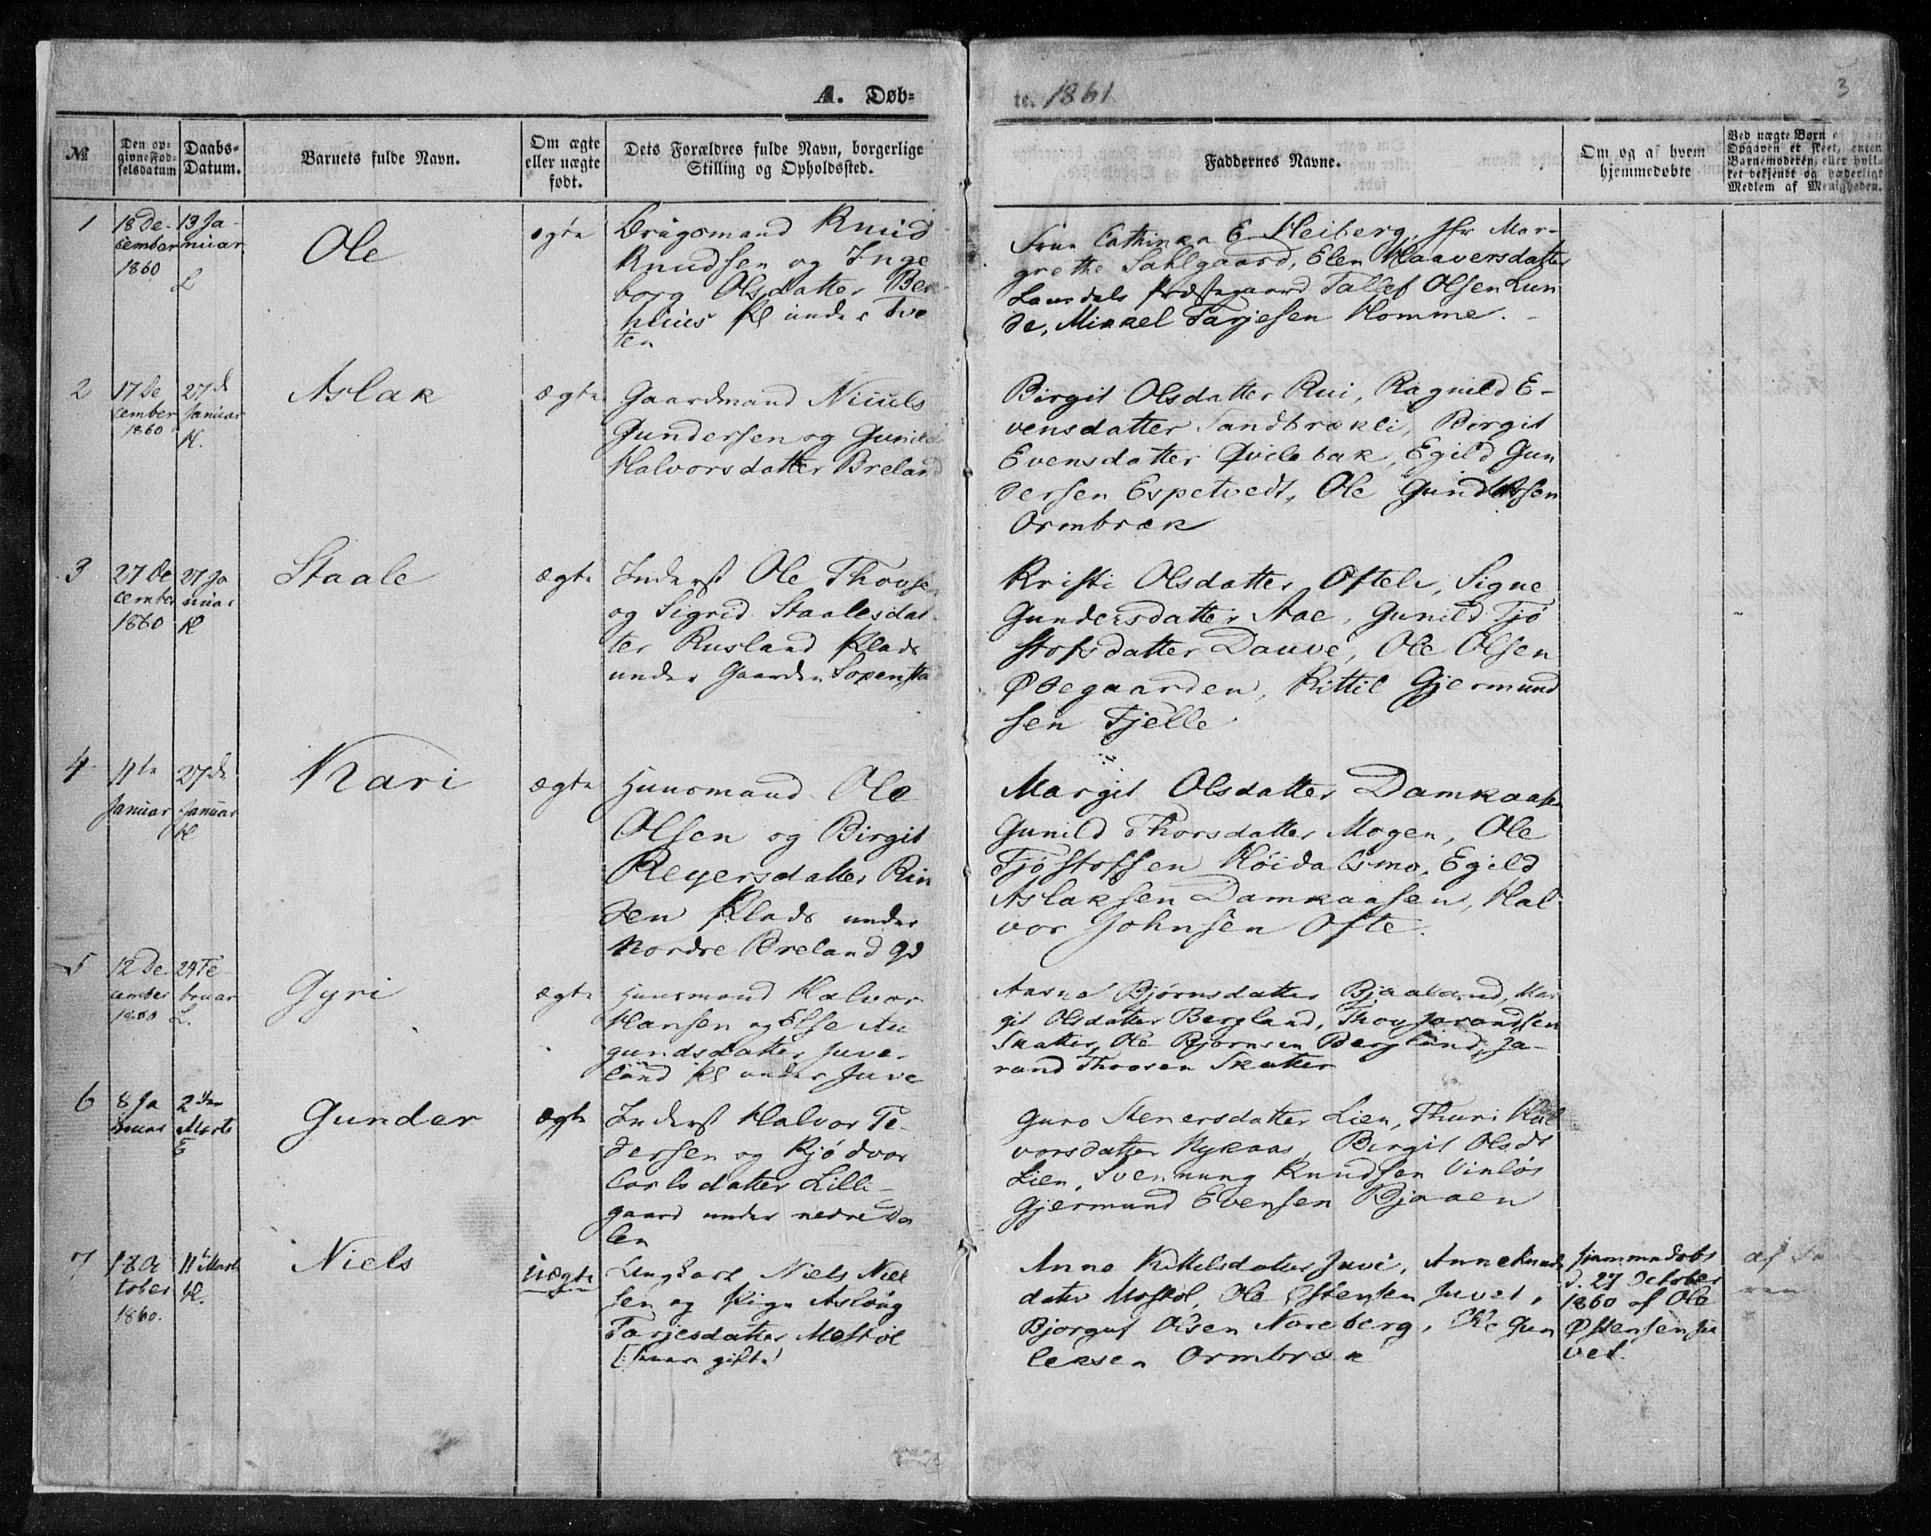 A. Døb-
te. 1861
3
№
Den op-
givne Fød-
selsdatum
Daabs-
Datum.
Barnets fulde Navn.
Om ægte
eller uægte
født.
Dets Forældres fulde Navn, borgerlige
Stilling og Opholdssted.
Faddernes Navne.
Om og af hvem
hjemmedøbte
Ved uægte Børn
Opgaven er skeet, enten
Barnemoderen, eller hvil-
ket bekjendt og hæderligt
Medlem af Menigheden.
1
18 De-
cember
1860
13 Ja-
nuar
L
Ole
ægte
Brugsmand Knud
Knudsen og Inge
borg Olsdatter
huus Pl under Tve
ten
Frue Cathinka E Heiberg, Jfr Mar-
grethe Sahlgaard, Elen Haaversdatter
Laurdals Præstegaard Tallef Olsen Lun
de, Mikkel Tarjesen Homme.
2
17 De
cember
1860
27 d
Januar
H.
Aslak
ægte
Gaardmand Niuuls
Gundersen og Gunild
Halvorsdatter Breland
Birgit Olsdatter Rui, Ragnild E-
vensdatter Sandbrækli, Birgit
Evensdatter Qvilebak, Egild Gun
dersen Espetvedt, Ole
Ormbræk
3
27 De
cember
1860
27 Ja
nuar
H
Staale
ægte
Inderst Ole Thovsen
og Sigrid Staalesdat
ter Rusland Plads
under Gaarden
Kristi Olsdatter Oftele, Signe
Gundersdatter Aae, Gunild Tjø
stofsdatter Dauve, Ole Olsen
Ødegaarden, Kittil Gjermund
sen Fjelle
4
11te
Januar
27de
Januar
H
Kari
ægte
Huusmand Ole
Olsen og Birgit
Reyersdatter Rin
den Plads under
Nordre Breland gd
Margit Olsdatter Damkaasen
Gunild Thorsdatter Mogen, Ole
Tjøstofsen Høidalsmo, Egild
Aslaksen Damkaasen, Hal
vor Johnsen Ofte.
5
12 De
cember
1860
24 Fe
bruar
L.
Gyri
ægte
Huusmand Halvor
Hansen og Else Au
gundsdatter Juve
land Pl under Juve
Aasne Bjørnsdatter Bjaaland, Mar
git Olsdatter Bergland, Thov Jarandsen
Skatter, Ole Bjørnsen Bergland, Ja-
rand Thovsen Skatter
6
8 Ja
nuar
2den
Marts
E
Gunder
ægte
Inderst Halvor Pe-
dersen og Bjødvor
Carlsdatter Lilli-
gaard under nedre Da
len
Guro Stenersdatter Lien, Thuri Hal
vorsdatter Nykaas, Birgit Olsdt
Lien, Svennung Knudsen Vinløs
Gjermund Evensen Bjaaen
7
17 Oc
tober
1860.
11te Marts
H.
Niels
uægte
Ungkarl Niels Niel
sen og Pige Aslaug
Tarjesdatter Mostøl
[: snart gifte
Anne Kittelsdatter Juvi, Anne Knuds
datter Mostøl, Ole Østensen Juvet,
Bjørguf Olsen Noreberg, Ole Gun
leksen Ormbræk
hjemmedøbt
d. 27 October
1860 af Ole
Østensen Ju
vet.
af Fa
ren